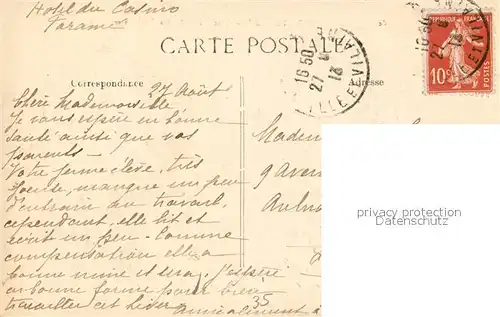 Hotel du Casino
Paramé
CARTE POSTALE
16 50
27 8
13
ILLE ET VILAINE
10c
POSTES
Correspondance
Adresse
27 Août
Chère Mademoiselle
Je vous espère en bonne
santé ainsi que vos
parents —
Votre jeune élève, très
joyeuse, manque un peu
d'entrain au travail,
cependant, elle lit et
écrit un peu — Comme
compensation elle a
bonne mine et sera, j'espère
en bonne forme pour bien
travailler cet hiver
amicalement à
Madem
9 Aven
Aulna
privacy protection
Datenschutz
35